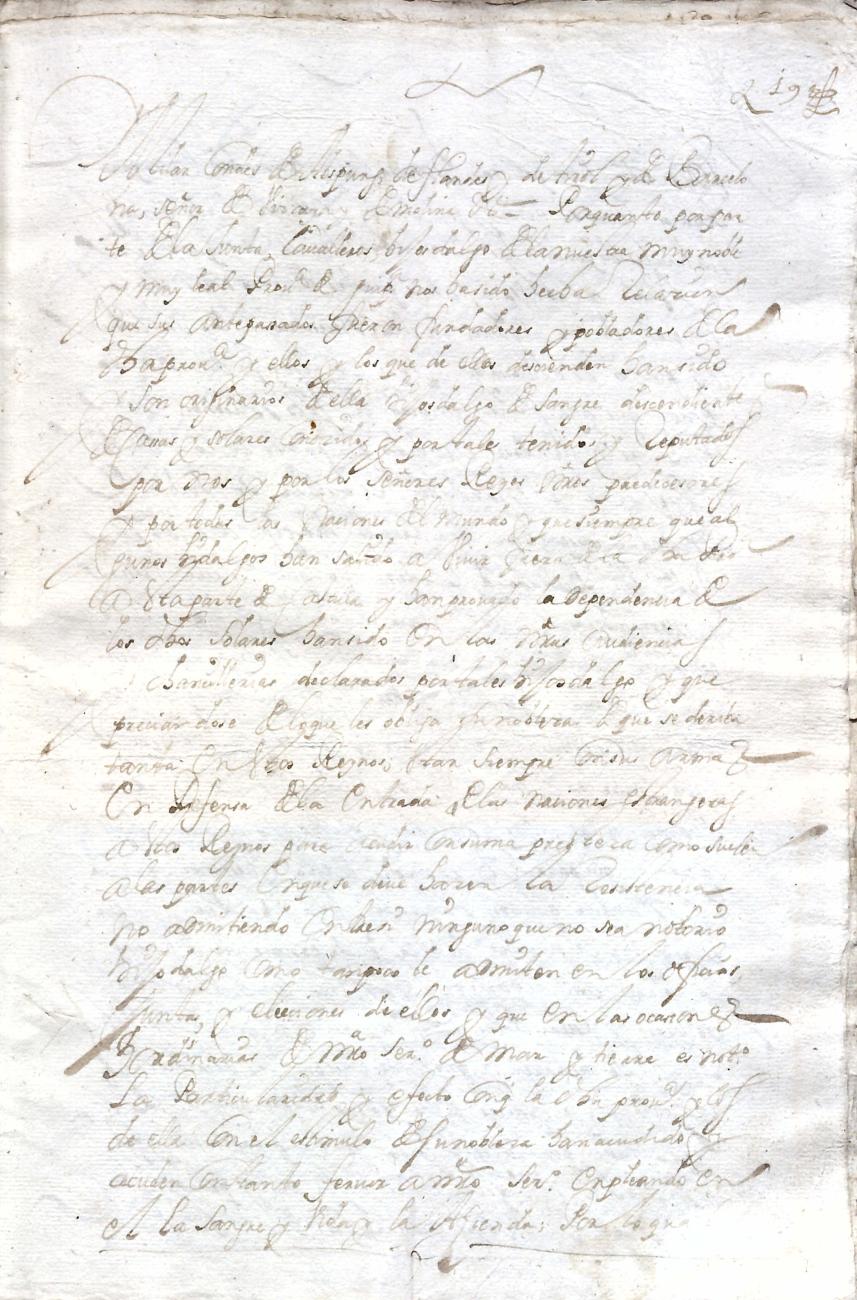 19
Conde de Aspurg de flandes y de tirol y de Barcelo
na, señor de Vizcaya y de molina &ª Por quanto por par
te de la Junta, Cavalleros hijosdalgo de la nuestra muy noble
y muy leal Prov.ª de guip.ª nos ha sido hecha relacion
que sus antepasados fueron fundadores y pobladores de la
dha prov.ª y ellos y los que de ellos descienden han sido
y son originarios de ella hijosdalgo de sangre descendiente
de casas y solares conocidos y por tales tenidos y Reputados
por nos y por los señores Reyes nros predecesores
y por todas las naciones del mundo y que siempre que al
gunos hidalgos han salido a vivir fuera de la dha Pro
a esta parte de castilla y han provado la dependencia de
los dhos solares han sido en las nras Audiencias
y chancillerias declarados por tales hijosdalgo y que
preciandose de lo que les obliga su nobleza de que se deriva
tanta en estos Reynos, estan siempre con sus armas
En defensa de la entrada de las naciones estrangeras
a estos Reynos para acudir con suma presteza como suelen
a las partes en que se deve hazer la resistencia
no admitiendo entre si ninguno que no sea notorio
hijodalgo como tampoco le admiten en los oficios,
Juntas, y elecciones de ellos y que en las ocasiones
hordinarias de nro ser.º de mar y tierra es not.º
La Particularidad y efecto con q la dha prov.ª y los
de ella con el estimulo de su nobleza han acudido y
acuden con tanto fervor a nro ser.º enpleando en
el la sangre y vida y la Hacienda; Por lo qual